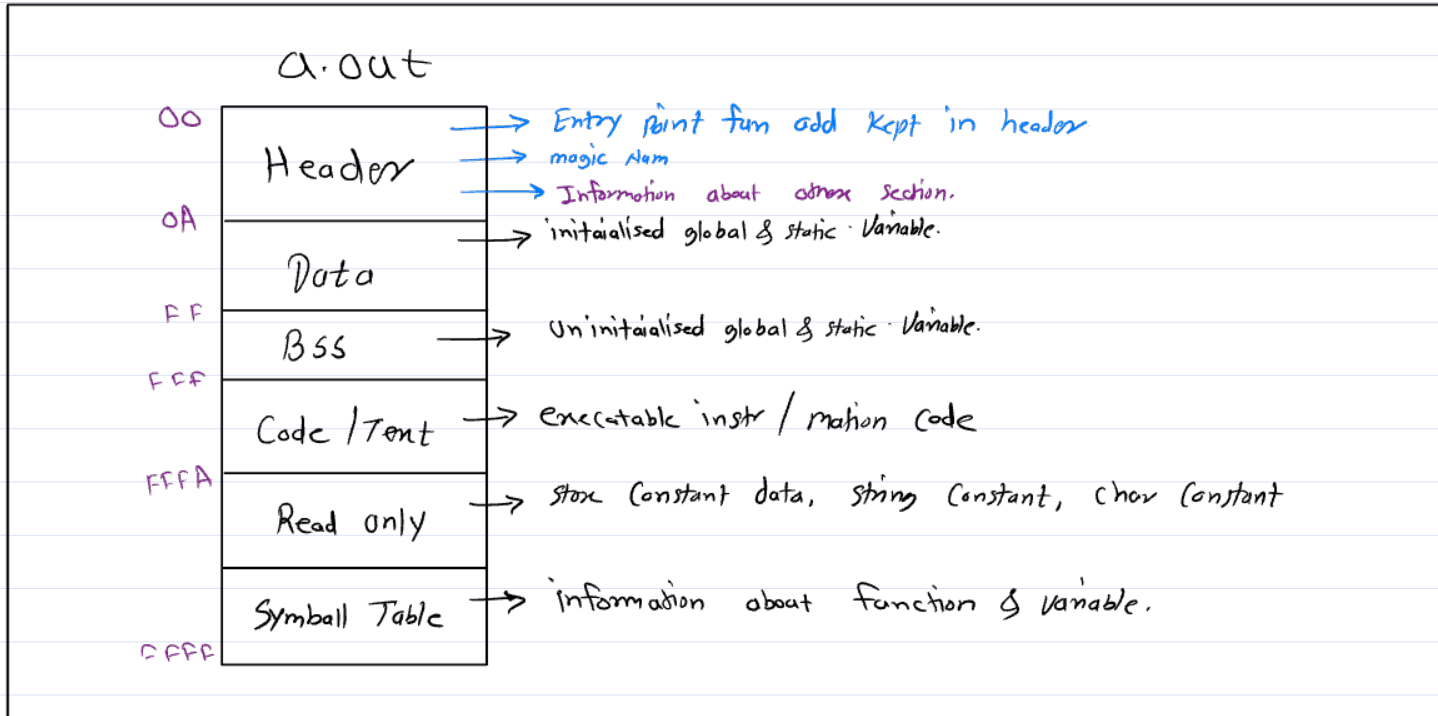 a.out
00
Header
Entry point fun add kept in header
magic Nam
Information about other section.
0A
Data
initaialised global & static Variable.
FF
BSS
Un initaialised global & static Variable.
FFF
Code/Text
executable instr / mation Code
FFFA
Read only
store Constant data, string Constant, char Constant
Symball Table
information about function & variable.
FFFF